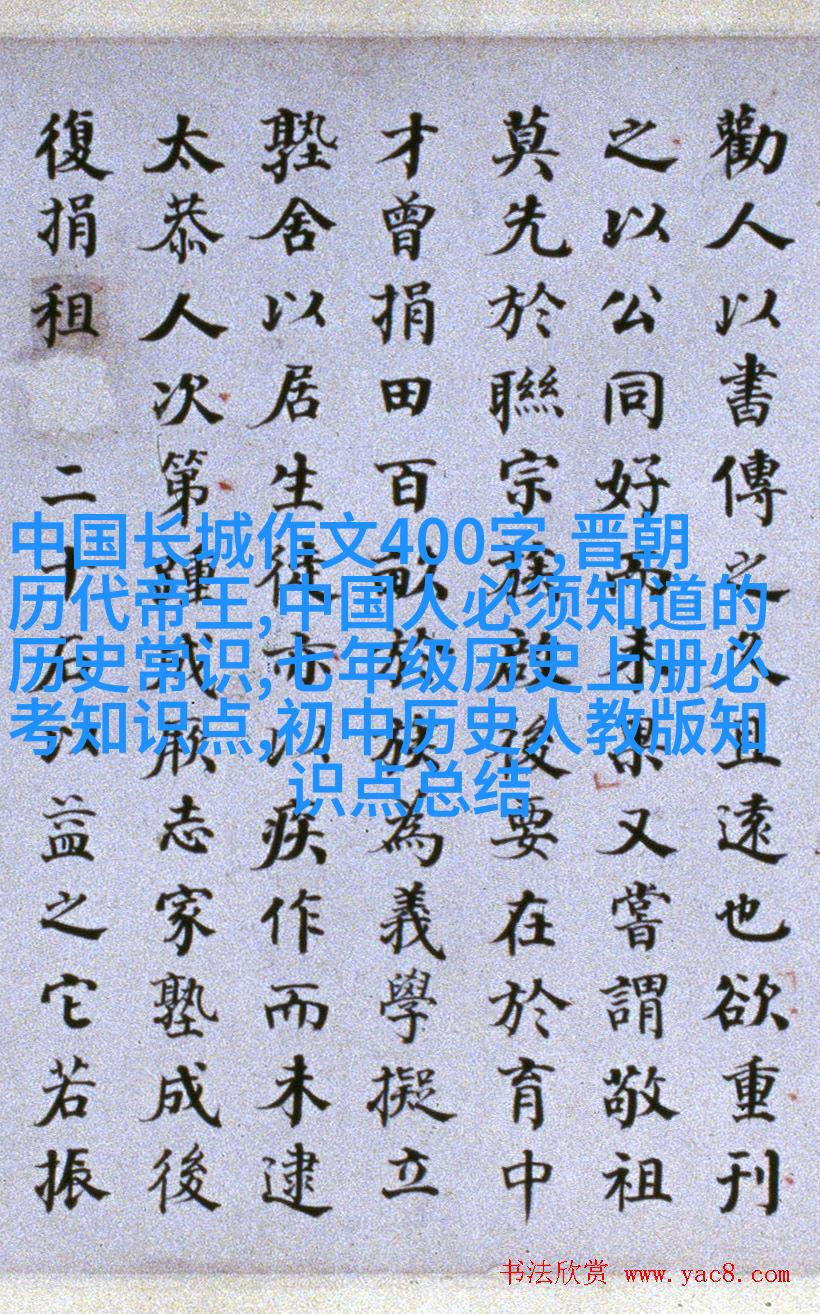 勸人以書傳之久且遠也欲重刊
之以公同好而未果又嘗謂敬祖
莫先於聯宗族啟後要在於育中
才曾捐田百畝於族為義學擬立
塾舍以居生徒亦以疾作而未逮
太恭人次第踵成厥志家塾成後
復捐租 二十石以益之它若振
中国长城作文400字,晋朝
历代帝王,中国人必须知道的
历史常识,七年级历史上册必
考知识点,初中历史人教版知
识点总结
书法欣赏 www.yac8.com